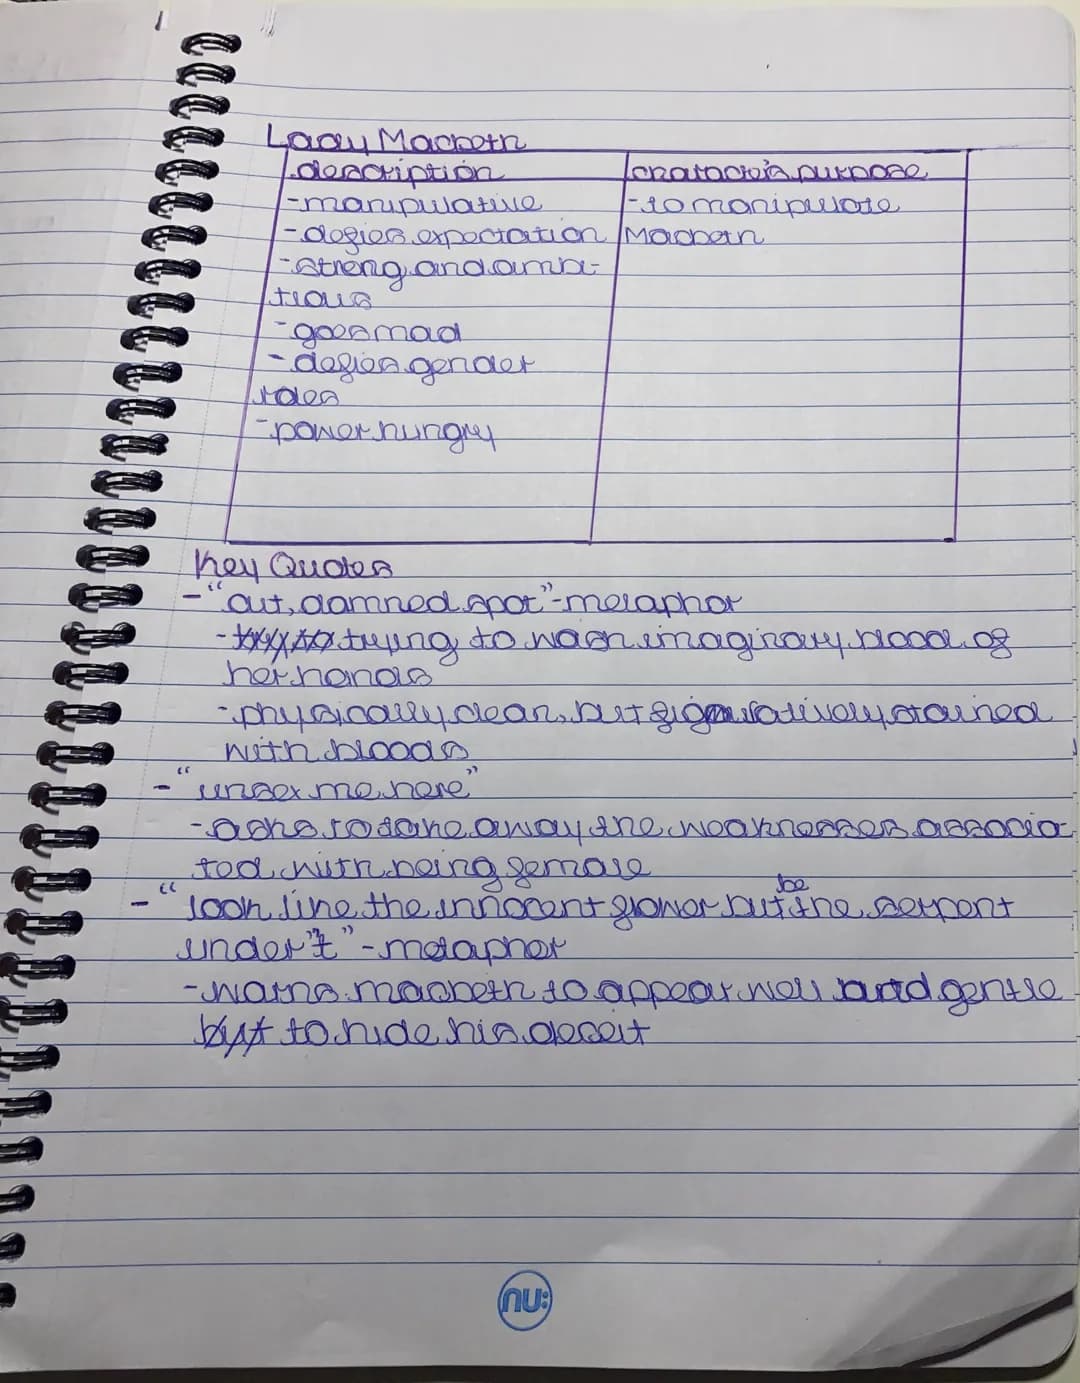 Lady Macbeth
description character's purpose
-manipulative -to manipulate
-defies expectation Macbeth
-strong and ambi-
tious
-goes mad
-defies gender
roles
-power hungry
Key Quotes
-"out, damned spot"-metaphor
-trying to wash imaginary blood of
her hands
-physically clean, but figuratively stained
with bloods
-"unsex me here"
-asks to take away the weaknesses associa-
ted with being female
-"look like the innocent flower but be the serpent
under't"-metaphor
-warns macbeth to appear well and gentle
to hide his deceit
nu: